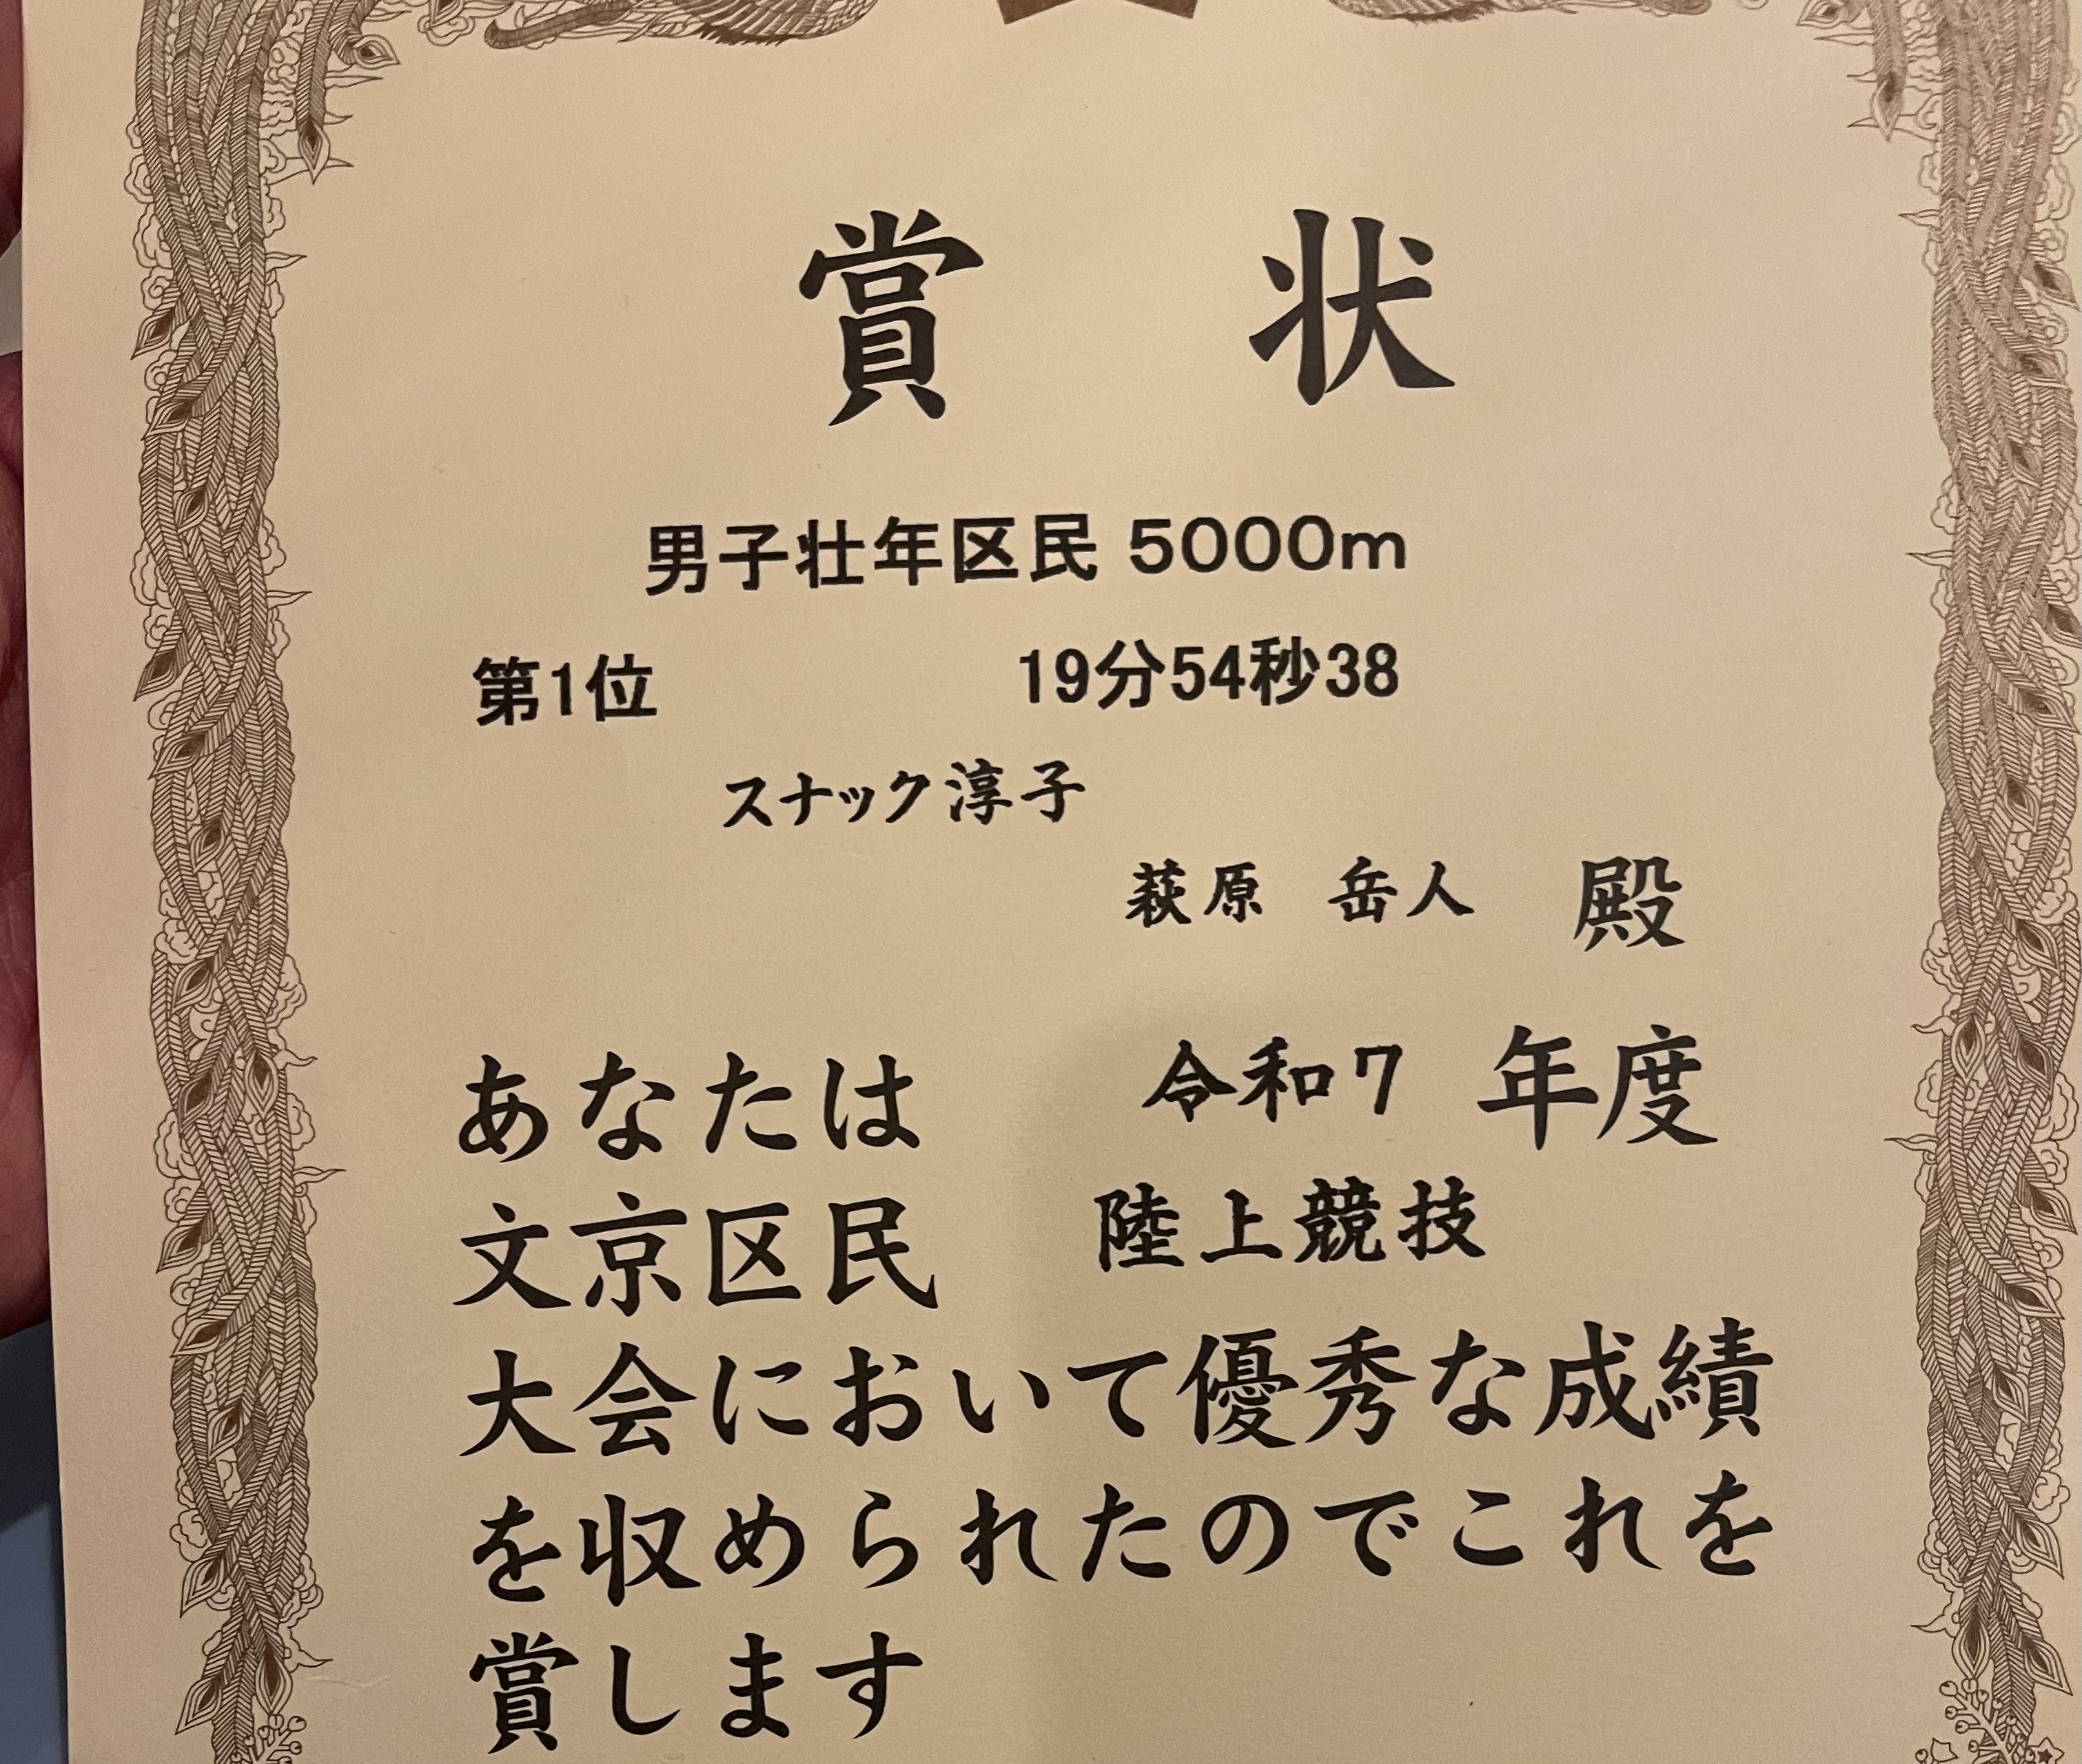 賞状
男子壮年区民 5000m
第1位 19分54秒38
スナック淳子
萩原 岳人 殿
あなたは 令和7 年度
文京区民 陸上競技
大会において優秀な成績
を収められたのでこれを
賞します